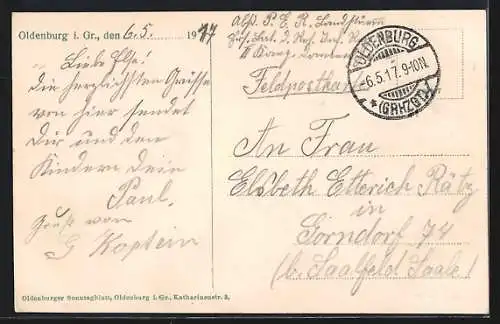 Oldenburg i. Gr., den 6.5. 1917
Liebe Else!
Die herzlichsten Grüsse
von hier sendet
Dir und den
Kindern Dein
Paul.
Gruß von
G Kaptein
Oldenburger Sonntagblatt, Oldenburg i. Gr., Katharinenstr. 3.
Abs. P. E. R. Landsturm
Inf. 2. Res. Inf. R
II Komp.
Feldpostkarte
OLDENBURG
-6.5.17.9-10N.
* (GRHZGT.)
An Frau
Elsbeth Etterich Rätz
in
Gorndorf 74
(b. Saalfeld Saale)